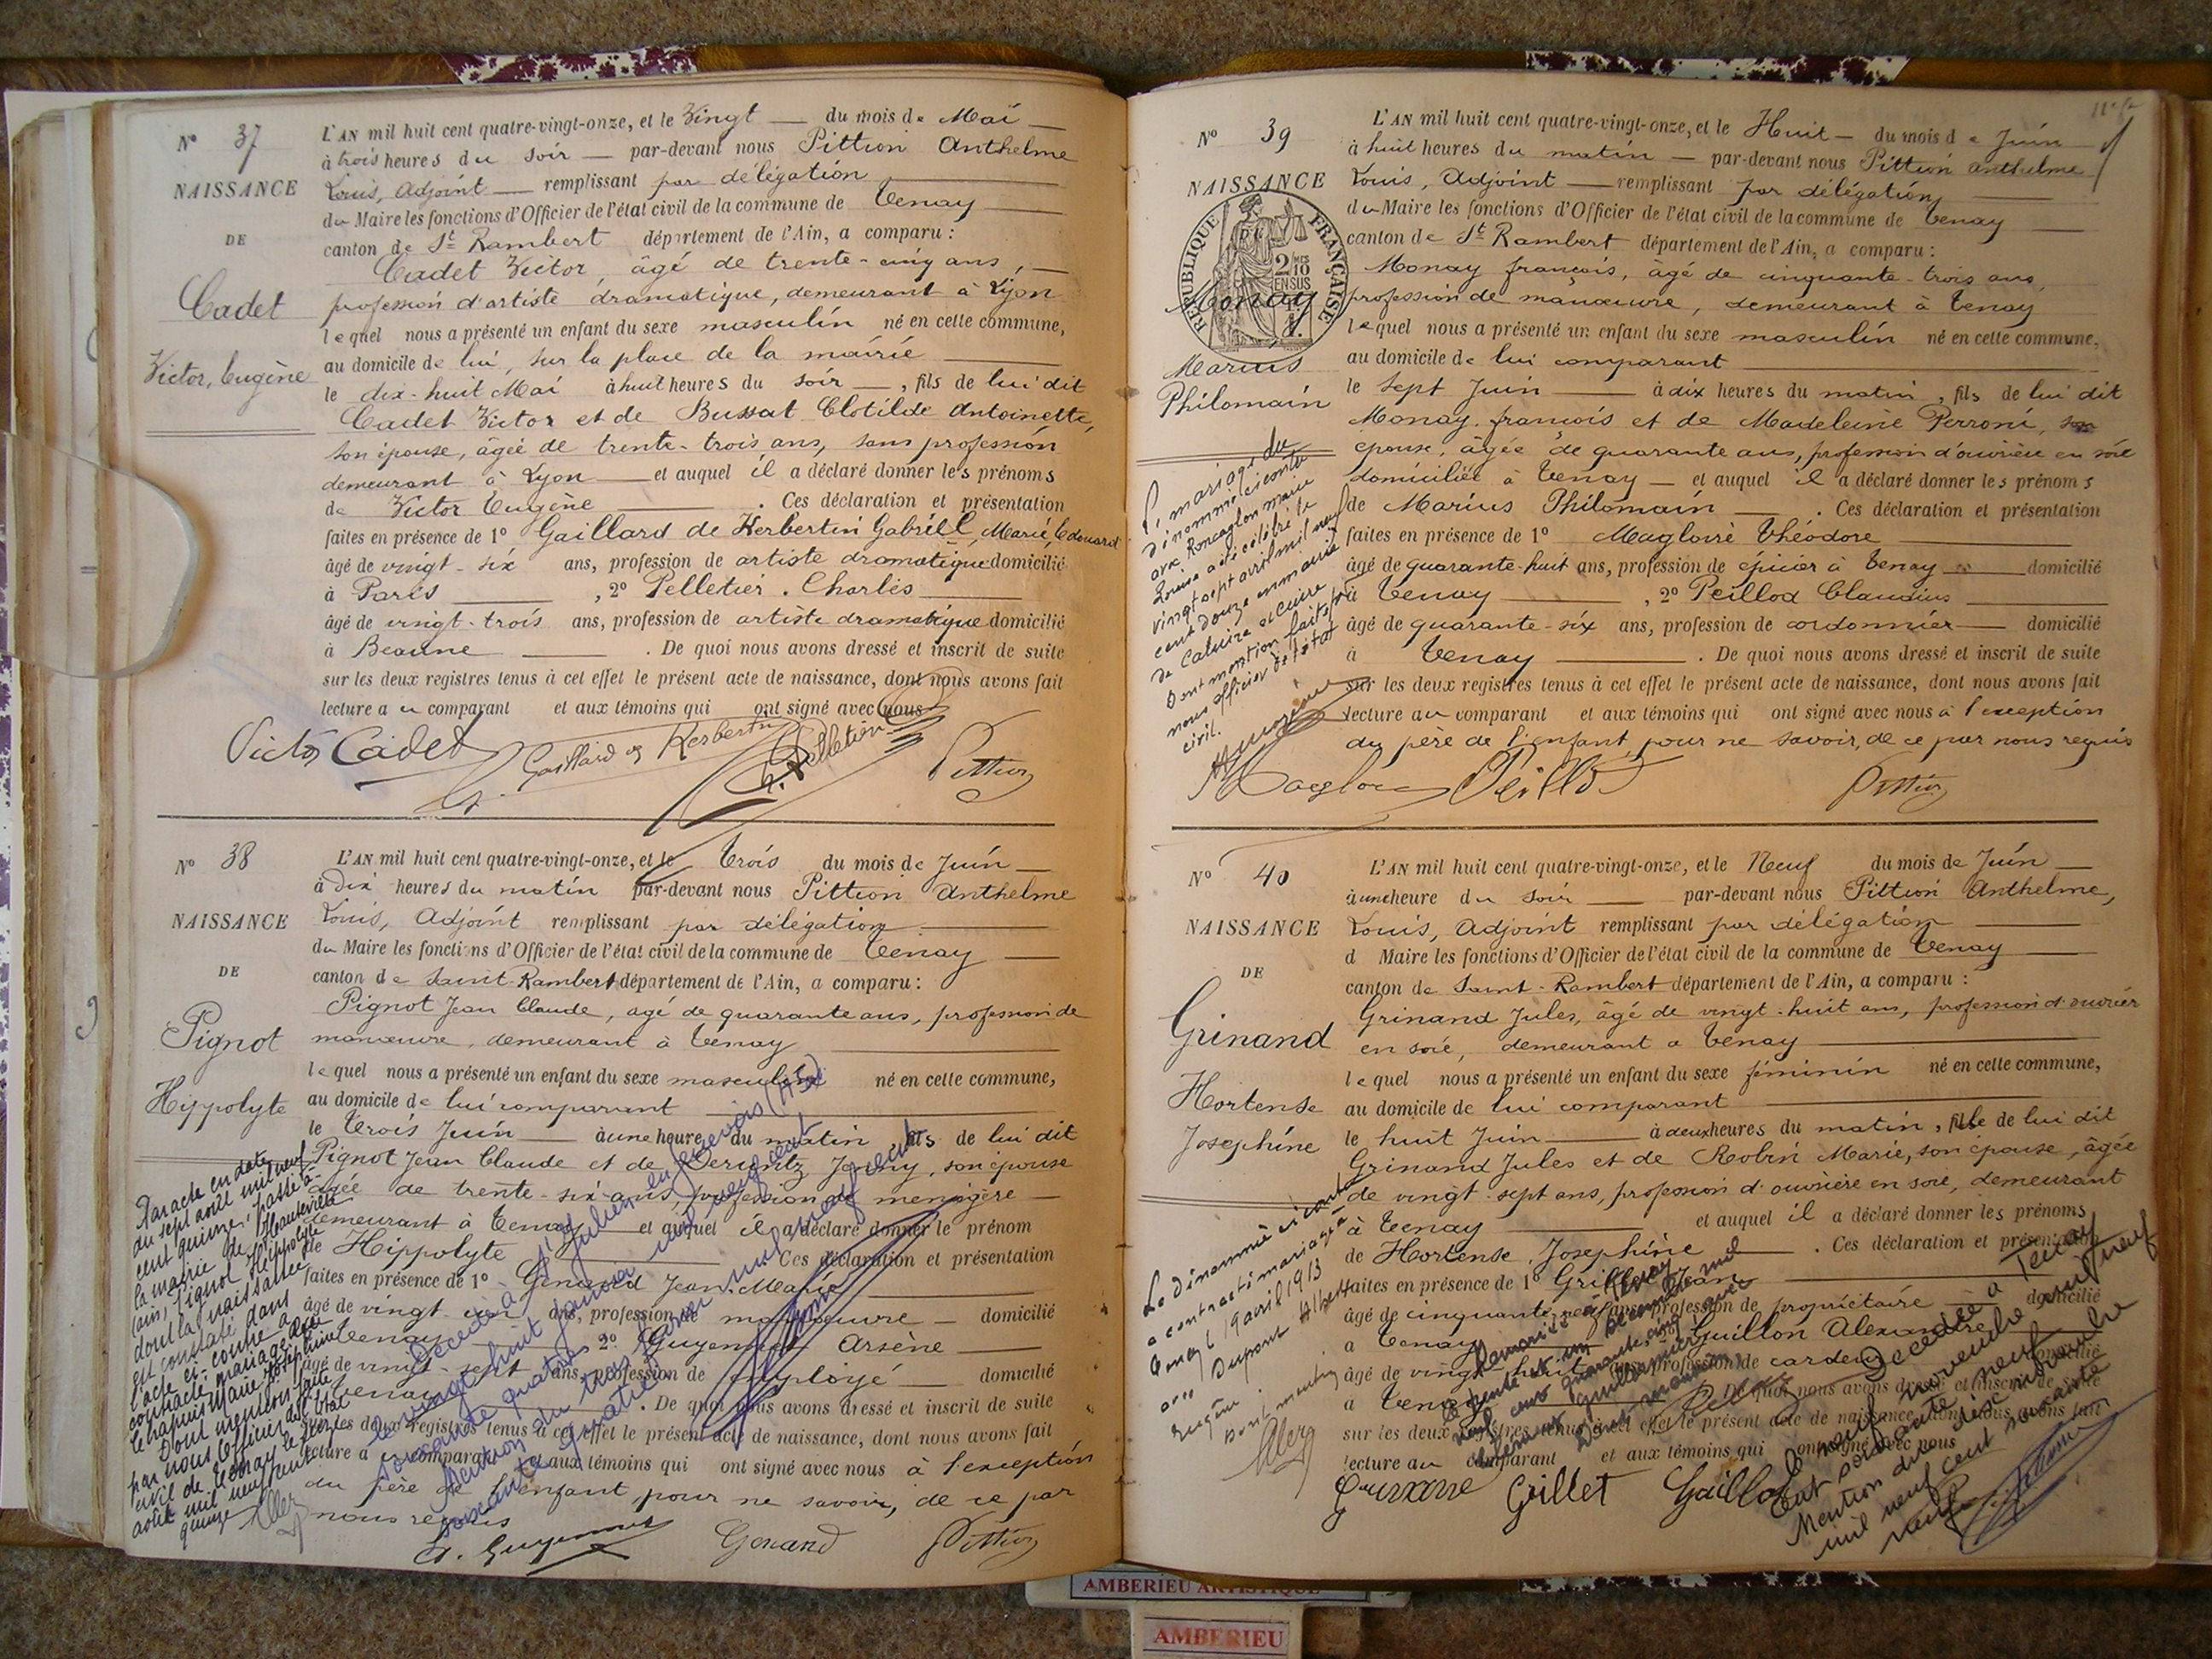 N° 37
NAISSANCE
DE
Cadet
Victor, Eugène
L'AN mil huit cent quatre-vingt-onze, et le Vingt du mois de Mai
à trois heures du soir par-devant nous Pittion Anthelme
Louis, Adjoint remplissant par délégation
du Maire les fonctions d'Officier de l'état civil de la commune de Tenay
canton de St Rambert département de l'Ain, a comparu :
Cadet Victor, âgé de trente-cinq ans,
profession d'artiste dramatique, demeurant à Lyon
lequel nous a présenté un enfant du sexe masculin né en cette commune,
au domicile de lui, sur la place de la mairie
le dix-huit Mai à huit heures du soir, fils de lui dit
Cadet Victor et de Bussat Clotilde Antoinette,
son épouse, âgée de trente-trois ans, sans profession
demeurant à Lyon et auquel il a déclaré donner les prénoms
de Victor Eugène. Ces déclaration et présentation
faites en présence de 1° Gaillard de Kerbertin Gabriel, Marie, Edouard
âgé de vingt-six ans, profession de artiste dramatique domicilié
à Paris, 2° Pelletier. Charles
âgé de vingt-trois ans, profession de artiste dramatique domicilié
à Beaune. De quoi nous avons dressé et inscrit de suite
sur les deux registres tenus à cet effet le présent acte de naissance, dont nous avons fait
lecture au comparant et aux témoins qui ont signé avec nous
Victor Cadet Gaillard de Kerbertin Pittion
N° 38
NAISSANCE
DE
Pignot
Hippolyte
L'AN mil huit cent quatre-vingt-onze, et le Trois du mois de Juin
à Dix heures du matin par-devant nous Pittion Anthelme
Louis, Adjoint remplissant par délégation
du Maire les fonctions d'Officier de l'état civil de la commune de Tenay
canton de Saint-Rambert département de l'Ain, a comparu :
Pignot Jean Claude, âgé de quarante ans, profession de
manœuvre, demeurant à Tenay
lequel nous a présenté un enfant du sexe masculin né en cette commune,
au domicile de lui comparant
le Trois Juin à une heure du matin, fils de lui dit
Pignot Jean Claude et de Jenny, son épouse
âgée de trente-six ans, profession de ménagère
demeurant à Tenay et auquel il a déclaré donner le prénom
de Hippolyte Ces déclaration et présentation
faites en présence de 1° Genard Jean-Marie
âgé de vingt ans, profession de manœuvre domicilié
à Tenay 2° Guyennet Arsène
âgé de vingt-sept ans, profession de employé domicilié
à Tenay. De quoi nous avons dressé et inscrit de suite
sur les deux registres tenus à cet effet le présent acte de naissance, dont nous avons fait
lecture au comparant et aux témoins qui ont signé avec nous à l'exception
du père de l'enfant, pour ne savoir, de ce par
nous requis
A. Guyennet Genard Pittion
Par acte en date
du sept août mil neuf
cent quinze, passé à
la mairie de Hauteville
(ain) Pignot Hippolyte
dont la naissance
est constatée dans
l'acte ci-contre a
contracté mariage avec
Chapuis Marie Joséphine
Dont mention faite
par nous officier de l'état
civil de Tenay le
août mil neuf cent
quinze
Décédé à St Julien en Genevois (H.S.)
le vingt huit janvier mil neuf cent
soixante quatre
Mention du trois février mil neuf cent
soixante quatre
N° 39
NAISSANCE
RÉPUBLIQUE FRANÇAISE
2/10 EN SUS
Monay
Marius
Philomain
L'AN mil huit cent quatre-vingt-onze, et le Huit du mois de Juin
à huit heures du matin par-devant nous Pittion Anthelme
Louis, Adjoint remplissant par délégation
du Maire les fonctions d'Officier de l'état civil de la commune de Tenay
canton de St Rambert département de l'Ain, a comparu :
Monay françois, âgé de cinquante-trois ans,
profession de manœuvre, demeurant à Tenay
lequel nous a présenté un enfant du sexe masculin né en cette commune,
au domicile de lui comparant
le sept Juin à dix heures du matin, fils de lui dit
Monay françois et de Madeleine Perroni, son
épouse, âgée de quarante ans, profession d'ouvrière en soie
domiciliée à Tenay et auquel il a déclaré donner les prénoms
de Marius Philomain. Ces déclaration et présentation
faites en présence de 1° Magloire Théodore
âgé de quarante-huit ans, profession de épicier à Tenay domicilié
à Tenay, 2° Peillod Claudius
âgé de quarante-six ans, profession de cordonnier domicilié
à Tenay. De quoi nous avons dressé et inscrit de suite
sur les deux registres tenus à cet effet le présent acte de naissance, dont nous avons fait
lecture au comparant et aux témoins qui ont signé avec nous à l'exception
du père de l'enfant, pour ne savoir, de ce par nous requis
Magloire Peillod Pittion
Le mariage du
dénommé ci-contre
avec Roncaglon marie
Louise a été célébré le
vingt sept avril mil neuf
cent douze en mairie
de Caluire et Cuire
Dont mention faite par
nous officier de l'état
civil.
N° 40
NAISSANCE
DE
Grinand
Hortense
Joséphine
L'AN mil huit cent quatre-vingt-onze, et le Neuf du mois de Juin
à une heure du soir par-devant nous Pittion Anthelme,
Louis, Adjoint remplissant par délégation
d Maire les fonctions d'Officier de l'état civil de la commune de Tenay
canton de Saint-Rambert département de l'Ain, a comparu :
Grinand Jules, âgé de vingt-huit ans, profession d'ouvrier
en soie, demeurant a Tenay
lequel nous a présenté un enfant du sexe féminin né en cette commune,
au domicile de lui comparant
le huit Juin à deux heures du matin, fille de lui dit
Grinand Jules et de Robin Marie, son épouse, âgée
de vingt-sept ans, profession d'ouvrière en soie, demeurant
à Tenay et auquel il a déclaré donner les prénoms
de Hortense Joséphine. Ces déclaration et présentation
faites en présence de 1° Grillet Jean
âgé de cinquante-neuf ans, profession de propriétaire domicilié
a Tenay Guillon Alexandre
âgé de vingt-huit ans, profession de cardeur domicilié
a Tenay De quoi nous avons dressé et inscrit de suite
sur les deux registres tenus à cet effet le présent acte de naissance, dont nous avons fait
lecture au comparant et aux témoins qui ont signé avec nous
Grillet
La dénommée ci contre
a contracté mariage à
Tenay le 19 avril 1913
avec Dupont Albert
Eugène
Dont mention
Remariée à Tenay
le trente et un décembre mil
neuf cent quarante cinq avec
Dont mention
Décédée à Tenay
le neuf novembre mil neuf
cent soixante neuf
Mention du dix novembre
mil neuf cent soixante
neuf
AMBERIEU ARTISTIQUE
AMBERIEU